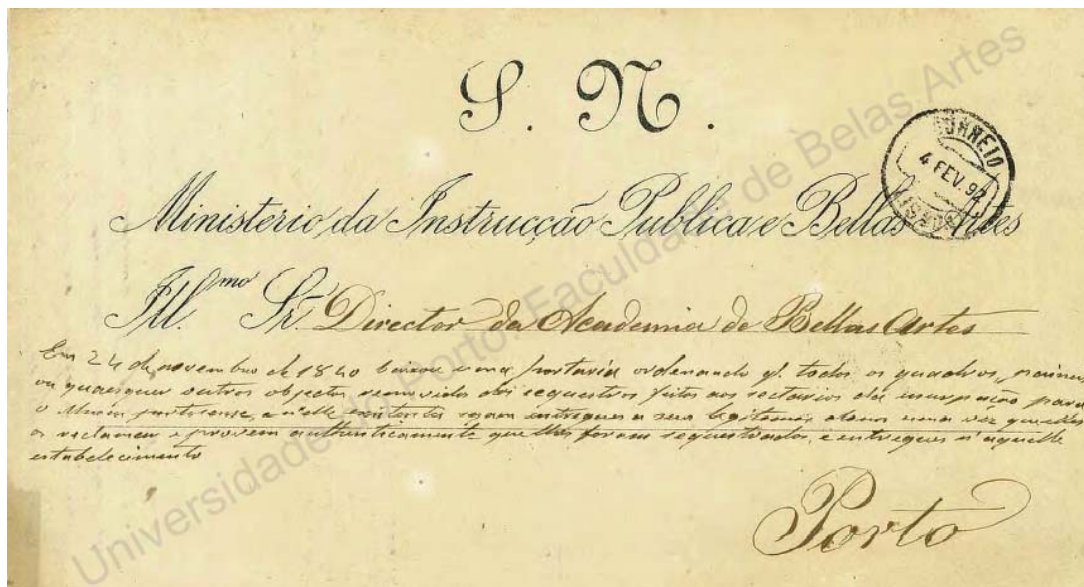 S. N.
CORREIO
4 FEV. 92
LISBOA
Ministerio da Instrucção Publica e Bellas Artes
Ill.mo Sr. Director da Academia de Bellas Artes
Em 24 de novembro de 1840 baixou uma portaria ordenando q. todos os quadros,
ou quaesquer outros objectos removidos dos sequestros feitos aos sectarios da usurpação para
o Museu portuense, e n'elle existentes sejam entregues a seus legitimos donos uma vez que elles
os reclamem e provem authenticamente que lhes foram sequestrados, e entregues n'aquelle
estabelecimento
Porto
Universidade do Porto. Faculdade de Belas Artes